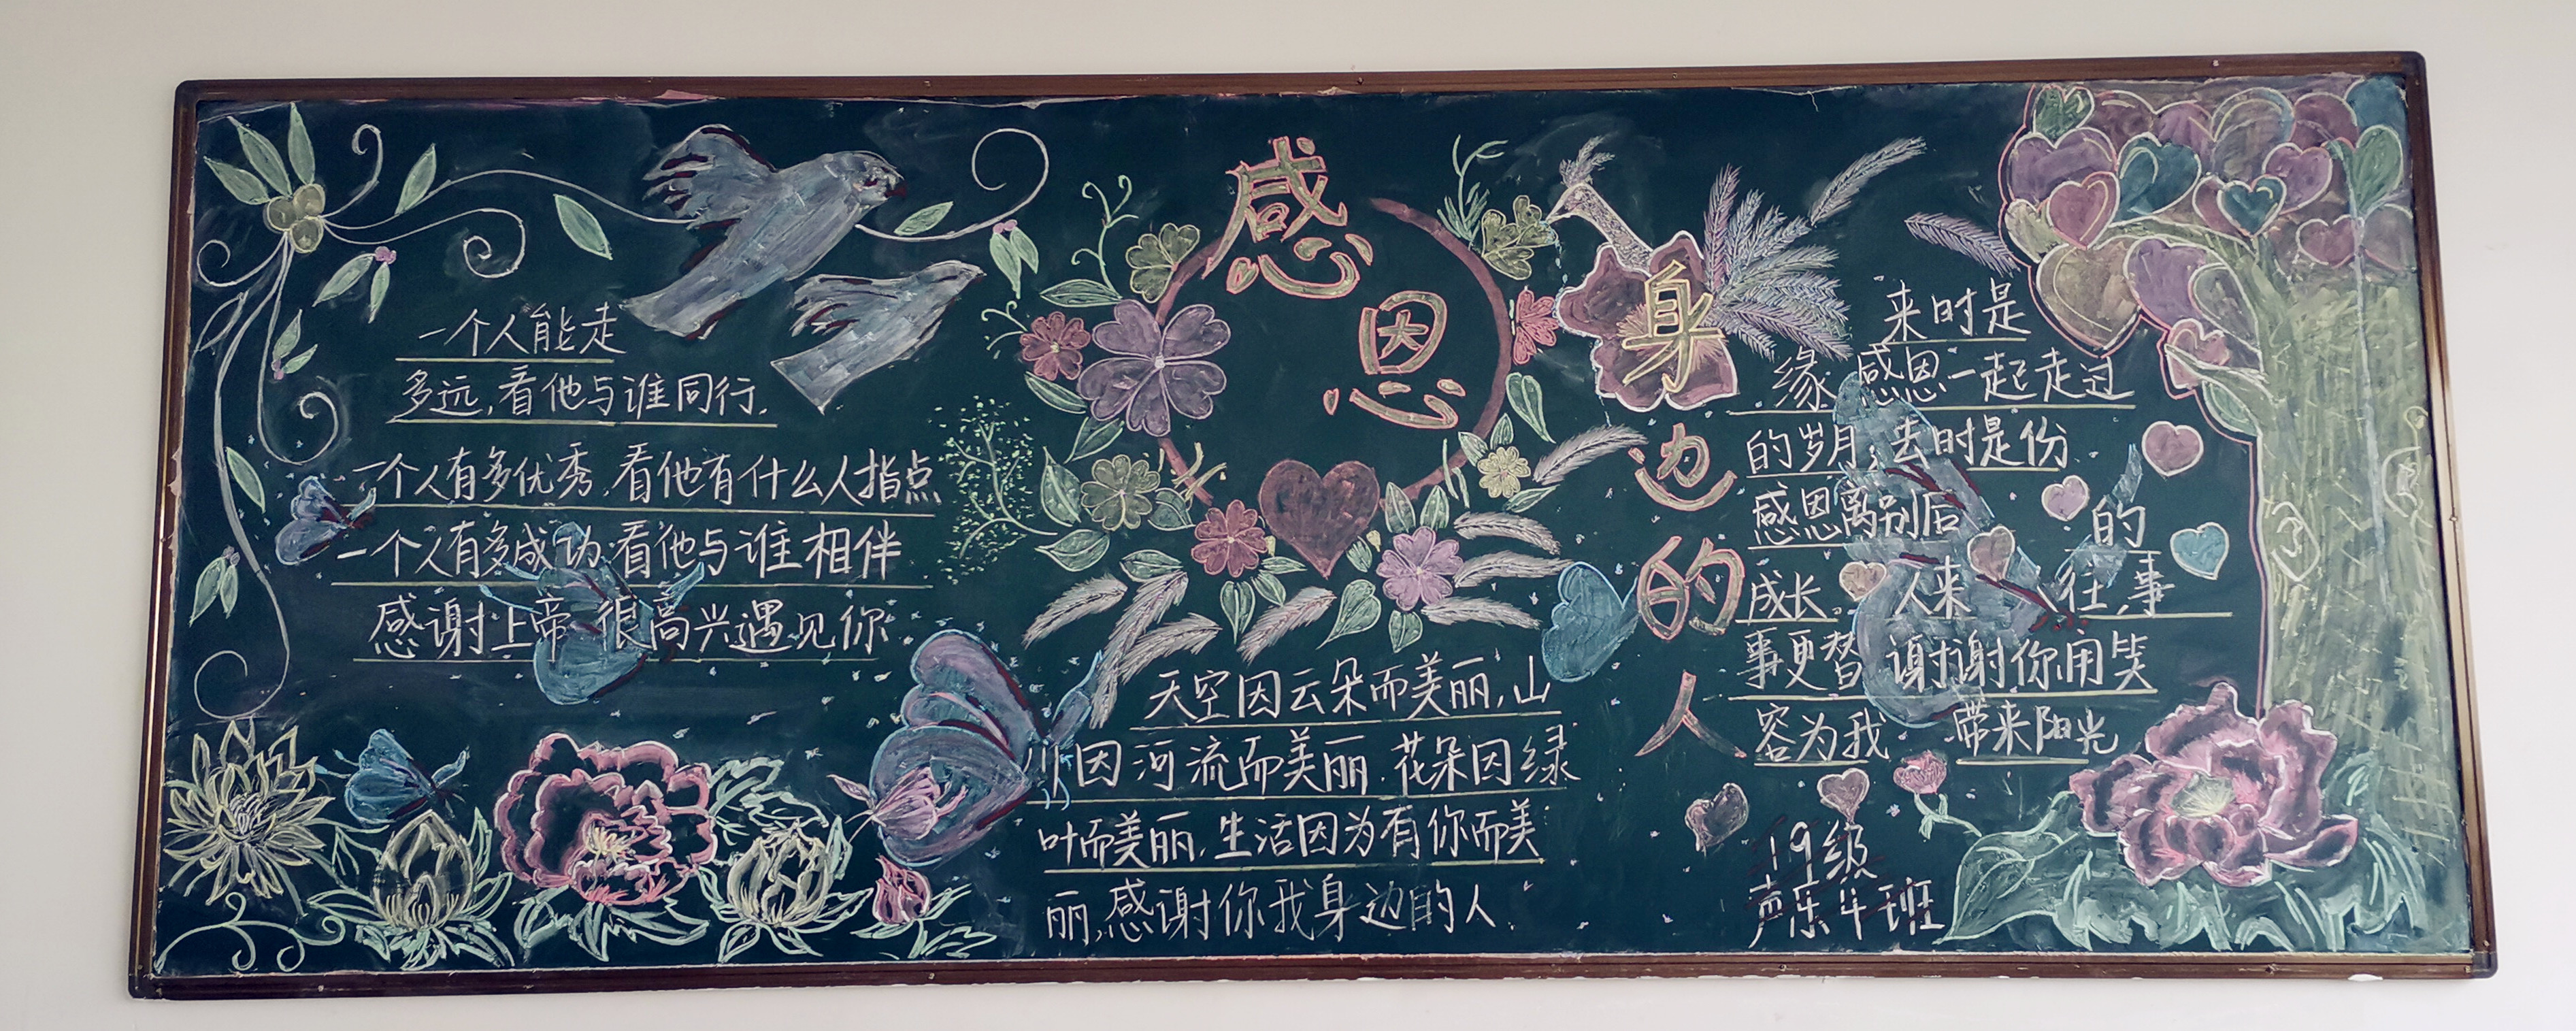 感恩
身边的人
一个人能走
多远,看他与谁同行.
一个人有多优秀.看他有什么人指点
一个人有多成功.看他与谁相伴
感谢上帝 很高兴遇见你
天空因云朵而美丽,山
川因河流而美丽.花朵因绿
叶而美丽.生活因为有你而美
丽,感谢你我身边的人.
来时是
缘 感恩一起走过
的岁月,去时是份
感恩离别后 的
成长 人来人往,事
事更替 谢谢你用笑
容为我 带来阳光
19级
声乐4班